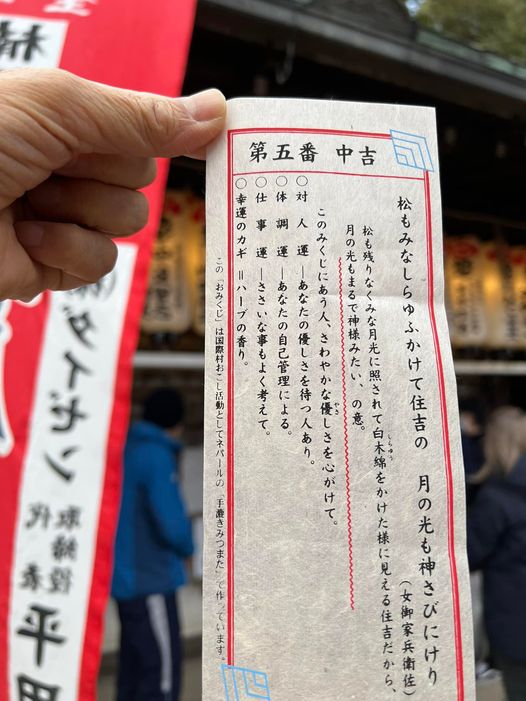 第五番 中吉
松もみなしらゆふかけて住吉の 月の光も神さびにけり
(女御家兵衛佐)
松も残りなくみな月光に照されて白木綿をかけた様に見える住吉だから、
しらゆう
月の光もまるで神様みたい、の意。
このみくじにあう人、さわやかな優しさを心がけて。
やさ
○対人運―あなたの優しさを待つ人あり。
○体調運―あなたの自己管理による。
○仕事運―ささいな事もよく考えて。
○幸運のカギ=ハーブの香り。
この「おみくじ」は国際村おこし活動としてネパールの「手漉きみつまた」で作っています。
ダイゼン
取締役
代表
平